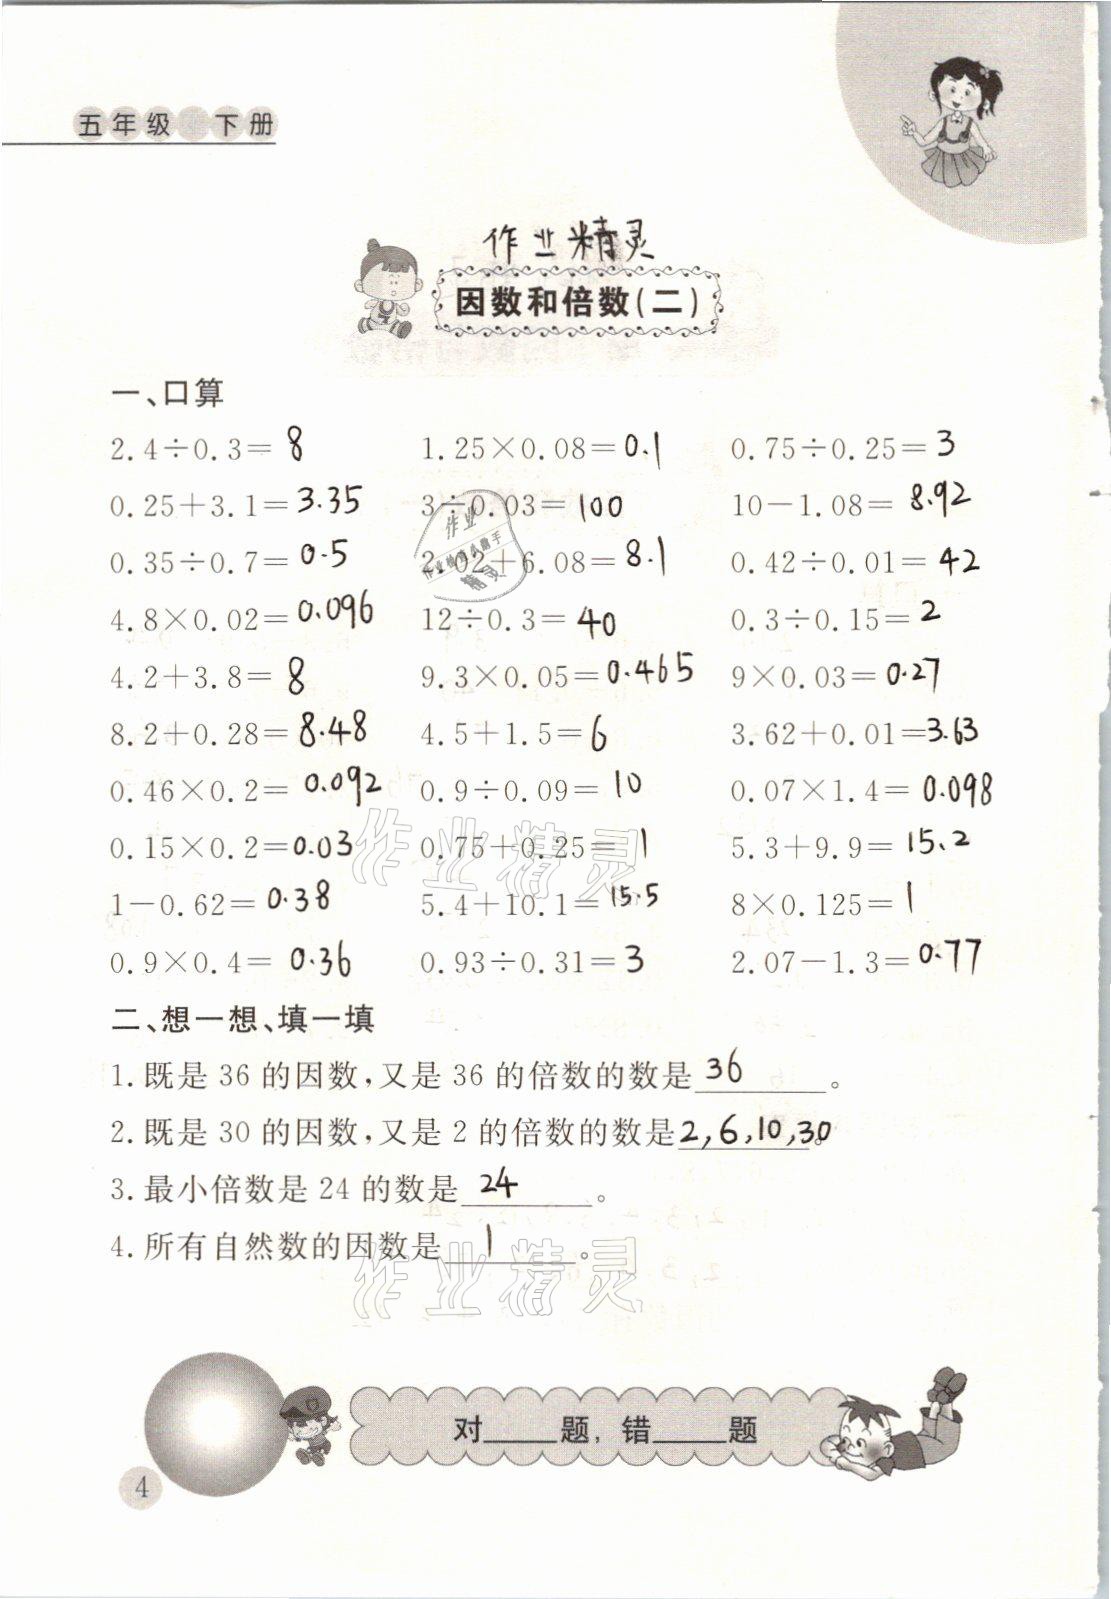 五年级 下册
作业精灵
因数和倍数(二)
一、口算
2.4÷0.3= 8 1.25×0.08= 0.1 0.75÷0.25= 3
0.25+3.1= 3.35 3÷0.03= 100 10-1.08= 8.92
0.35÷0.7= 0.5 2.02+6.08= 8.1 0.42÷0.01= 42
4.8×0.02= 0.096 12÷0.3= 40 0.3÷0.15= 2
4.2+3.8= 8 9.3×0.05= 0.465 9×0.03= 0.27
8.2+0.28= 8.48 4.5+1.5= 6 3.62+0.01= 3.63
0.46×0.2= 0.092 0.9÷0.09= 10 0.07×1.4= 0.098
0.15×0.2= 0.03 0.75+0.25= 1 5.3+9.9= 15.2
1-0.62= 0.38 5.4+10.1= 15.5 8×0.125= 1
0.9×0.4= 0.36 0.93÷0.31= 3 2.07-1.3= 0.77
作业精灵
二、想一想、填一填
1.既是 36 的因数,又是 36 的倍数的数是 36 。
2.既是 30 的因数,又是 2 的倍数的数是 2,6,10,30 。
3.最小倍数是 24 的数是 24 。
4.所有自然数的因数是 1 。
作业精灵
对____题, 错____题
4